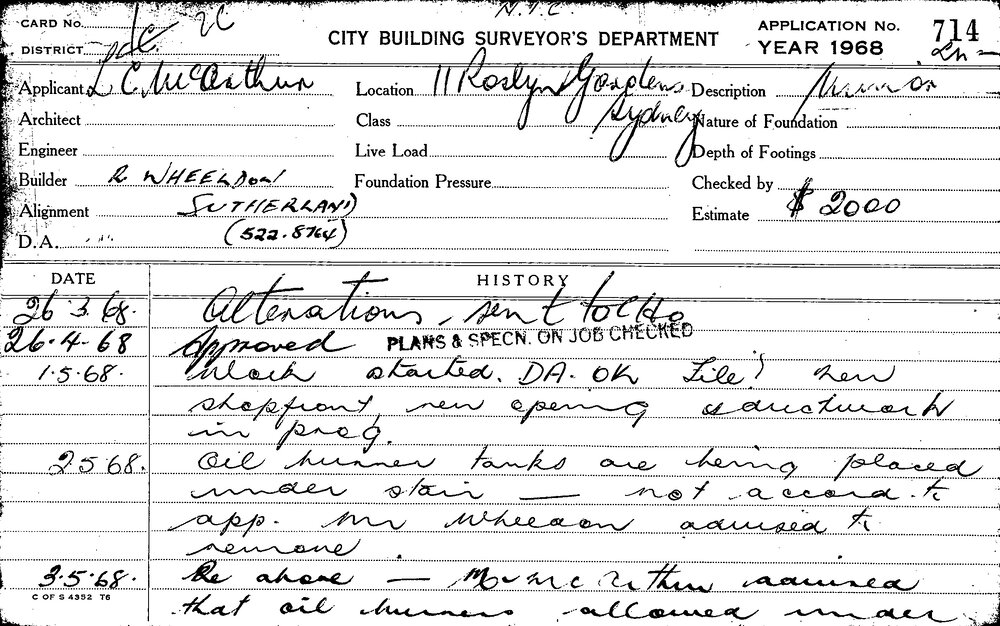 CARD No. 2C N.T.C
DISTRICT
CITY BUILDING SURVEYOR'S DEPARTMENT
APPLICATION No. 714
YEAR 1968
Applicant L C. McArthur
Location 11 Roslyn Gardens
Sydney
Description
Architect
Class
Nature of Foundation
Engineer
Live Load
Depth of Footings
Builder R WHEELDON
Foundation Pressure
Checked by
Alignment SUTHERLAND
Estimate $ 2000
D.A. (522.8764)
DATE HISTORY
26.3.68. Alterations, sent to
26.4.68 Approved PLANS & SPECN. ON JOB CHECKED
1.5.68. Work started. DA. OK File? New
shopfront, new opening & ductwork
in prog.
2.5.68. Oil burner tanks are being placed
under stair — not accord. to
app. Mr Wheeldon advised to
remove.
3.5.68. Re above — Mr McArthur advised
that oil burners allowed under
C OF S 4352 T6